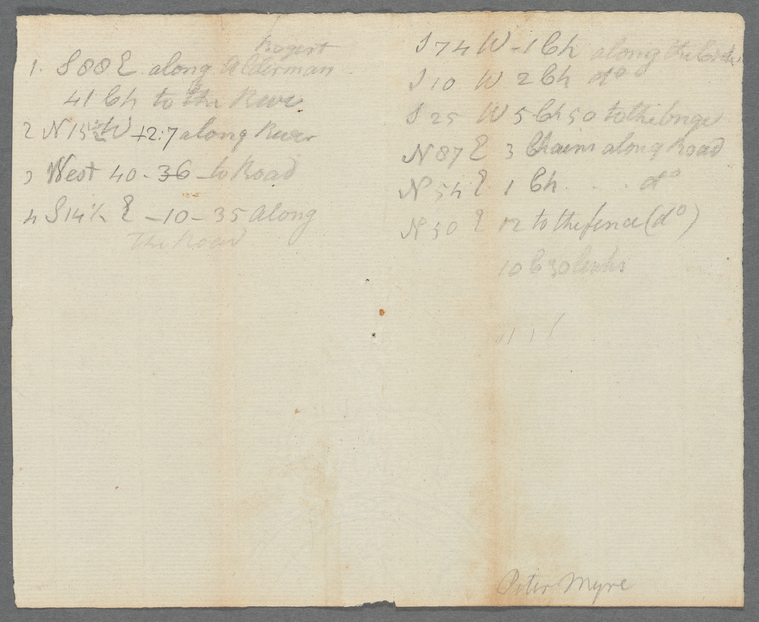 Rogert
1. S 88 E along Alderman
41 Ch to the River
2 N 15 W 12:7 along River
3 West 40-36-to Road
4 S 14½ E -10-35 Along
the Road
S 74 W -1 Ch along the
S 10 W 2 Ch do
S 25 W 5 Ch 50 to the
N 87 E 3 Chains along Road
N 54 E 1 Ch . . . do
N 50 E 12 to the fence (do)
10 C 30 links
Peter Myre